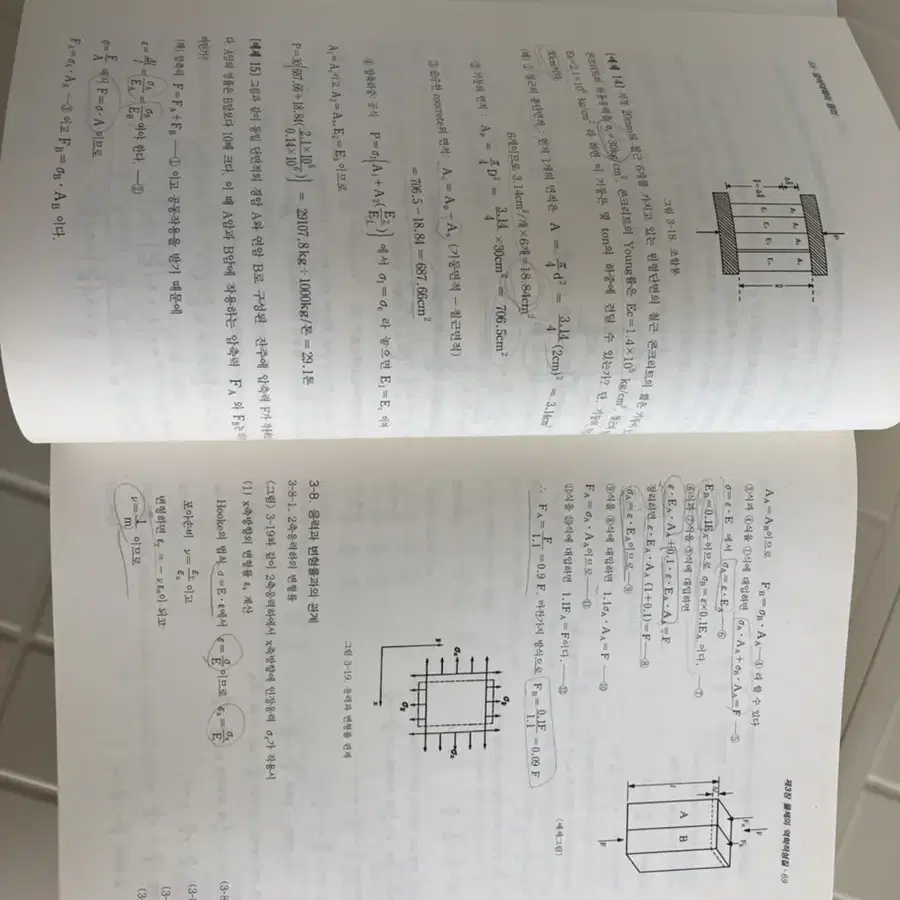 그림 3-18. 조합봉
[예제 14] 직경 20mm의 철근 6개를 가지고 있는 원형단면의 철근 콘크리트의 짧은 기둥이
콘크리트의 허용응력을 σc=30kg/cm², 콘크리트의 Young률은 Ec=1.4×10⁵ kg/cm²
Es=2.1×10⁶ kg/cm² 라 하면 이 기둥은 몇 ton의 하중에 견딜 수 있는가? 단, 기둥의
30cm이다.
(해) ① 철근의 총단면적 : 먼저 1개의 면적은 A = π/4 d² = 3.14/4 (2cm)² = 3.14cm²
6개이므로 3.14cm²/개×6개=18.84cm²
② 기둥의 면적 : Ap = π/4 D² = 3.14/4 ×30cm² = 706.5cm²
③ 순수한 concrete의 면적 : A₁ = Ap - As (기둥면적 - 철근면적)
= 706.5 - 18.84 = 687.66cm²
④ 압축하중 공식 P = σ₁{A₁ + A₂(E₂/E₁)} 에서 σ₁ = σc 라 놓으면 E₁=Ec 이며
A₁=Ac이고 A₂=As, E₂=Es이므로
P=30{687.66+18.84(2.1×10⁶/0.14×10⁶)} = 29107.8kg÷1000kg/톤=29.1톤
[예제 15] 그림과 같이 동일 단면적의 경암 A와 연암 B로 구성된 잔주에 압축력 F가
다. A암의 영률은 B암보다 10배 크다. 이 때 A암과 B암에 작용하는 압축력 FA 와 FB는
어떤가?
(해) 압축력 F=FA+FB —① 이고 공동작용을 받기 때문에
ε = Δl/l = σA/EA = σB/EB 여야 한다. —②
σ=F/A 에서 F=σ·A 이므로
FA=σA·AA —③ 이고 FB=σB·AB 이다.
제3장 물체의 역학적성질·69
AA=AB이므로 FB=σB·AA —④ 라 할 수 있다
③식과 ④식을 ①식에 대입하면 σA·AA+σB·AA=F —⑤
σ=ε·E 에서 σA=ε·EA —⑥
EB=0.1EA이므로 σB=ε×0.1EA 이다. —⑦
⑥식과 ⑦식을 ⑤식에 대입하면
ε·EA·AA+0.1·ε·EA·AA=F
정리하면 ε·EA·AA (1+0.1)=F —⑧
σA=ε·EA이므로 —⑨
⑨식을 ⑧식에 대입하면 1.1σA·AA=F —⑩
FA=σA·AA이므로 —⑪
⑪식을 ⑩식에 대입하면 1.1FA=F이다. —⑫
∴ FA=F/1.1=0.9 F. 마찬가지 방식으로 FB=0.1F/1.1=0.09 F
(예제그림)
3-8. 응력과 변형률과의 관계
3-8-1. 2축응력하의 변형률
그림 3-19. 응력과 변형률 관계
(그림) 3-19와 같이 2축응력하에서 x축방향에 인장응력 σx가 작용시
(1) x축방향의 변형률 εx 계산
Hooke의 법칙 σ=E·ε에서 ε=σ/E이므로 εx=σx/E
포아슨비 ν=εy/εx이고
변형하면 εy=-νεx이 되고
ν=1/m 이므로